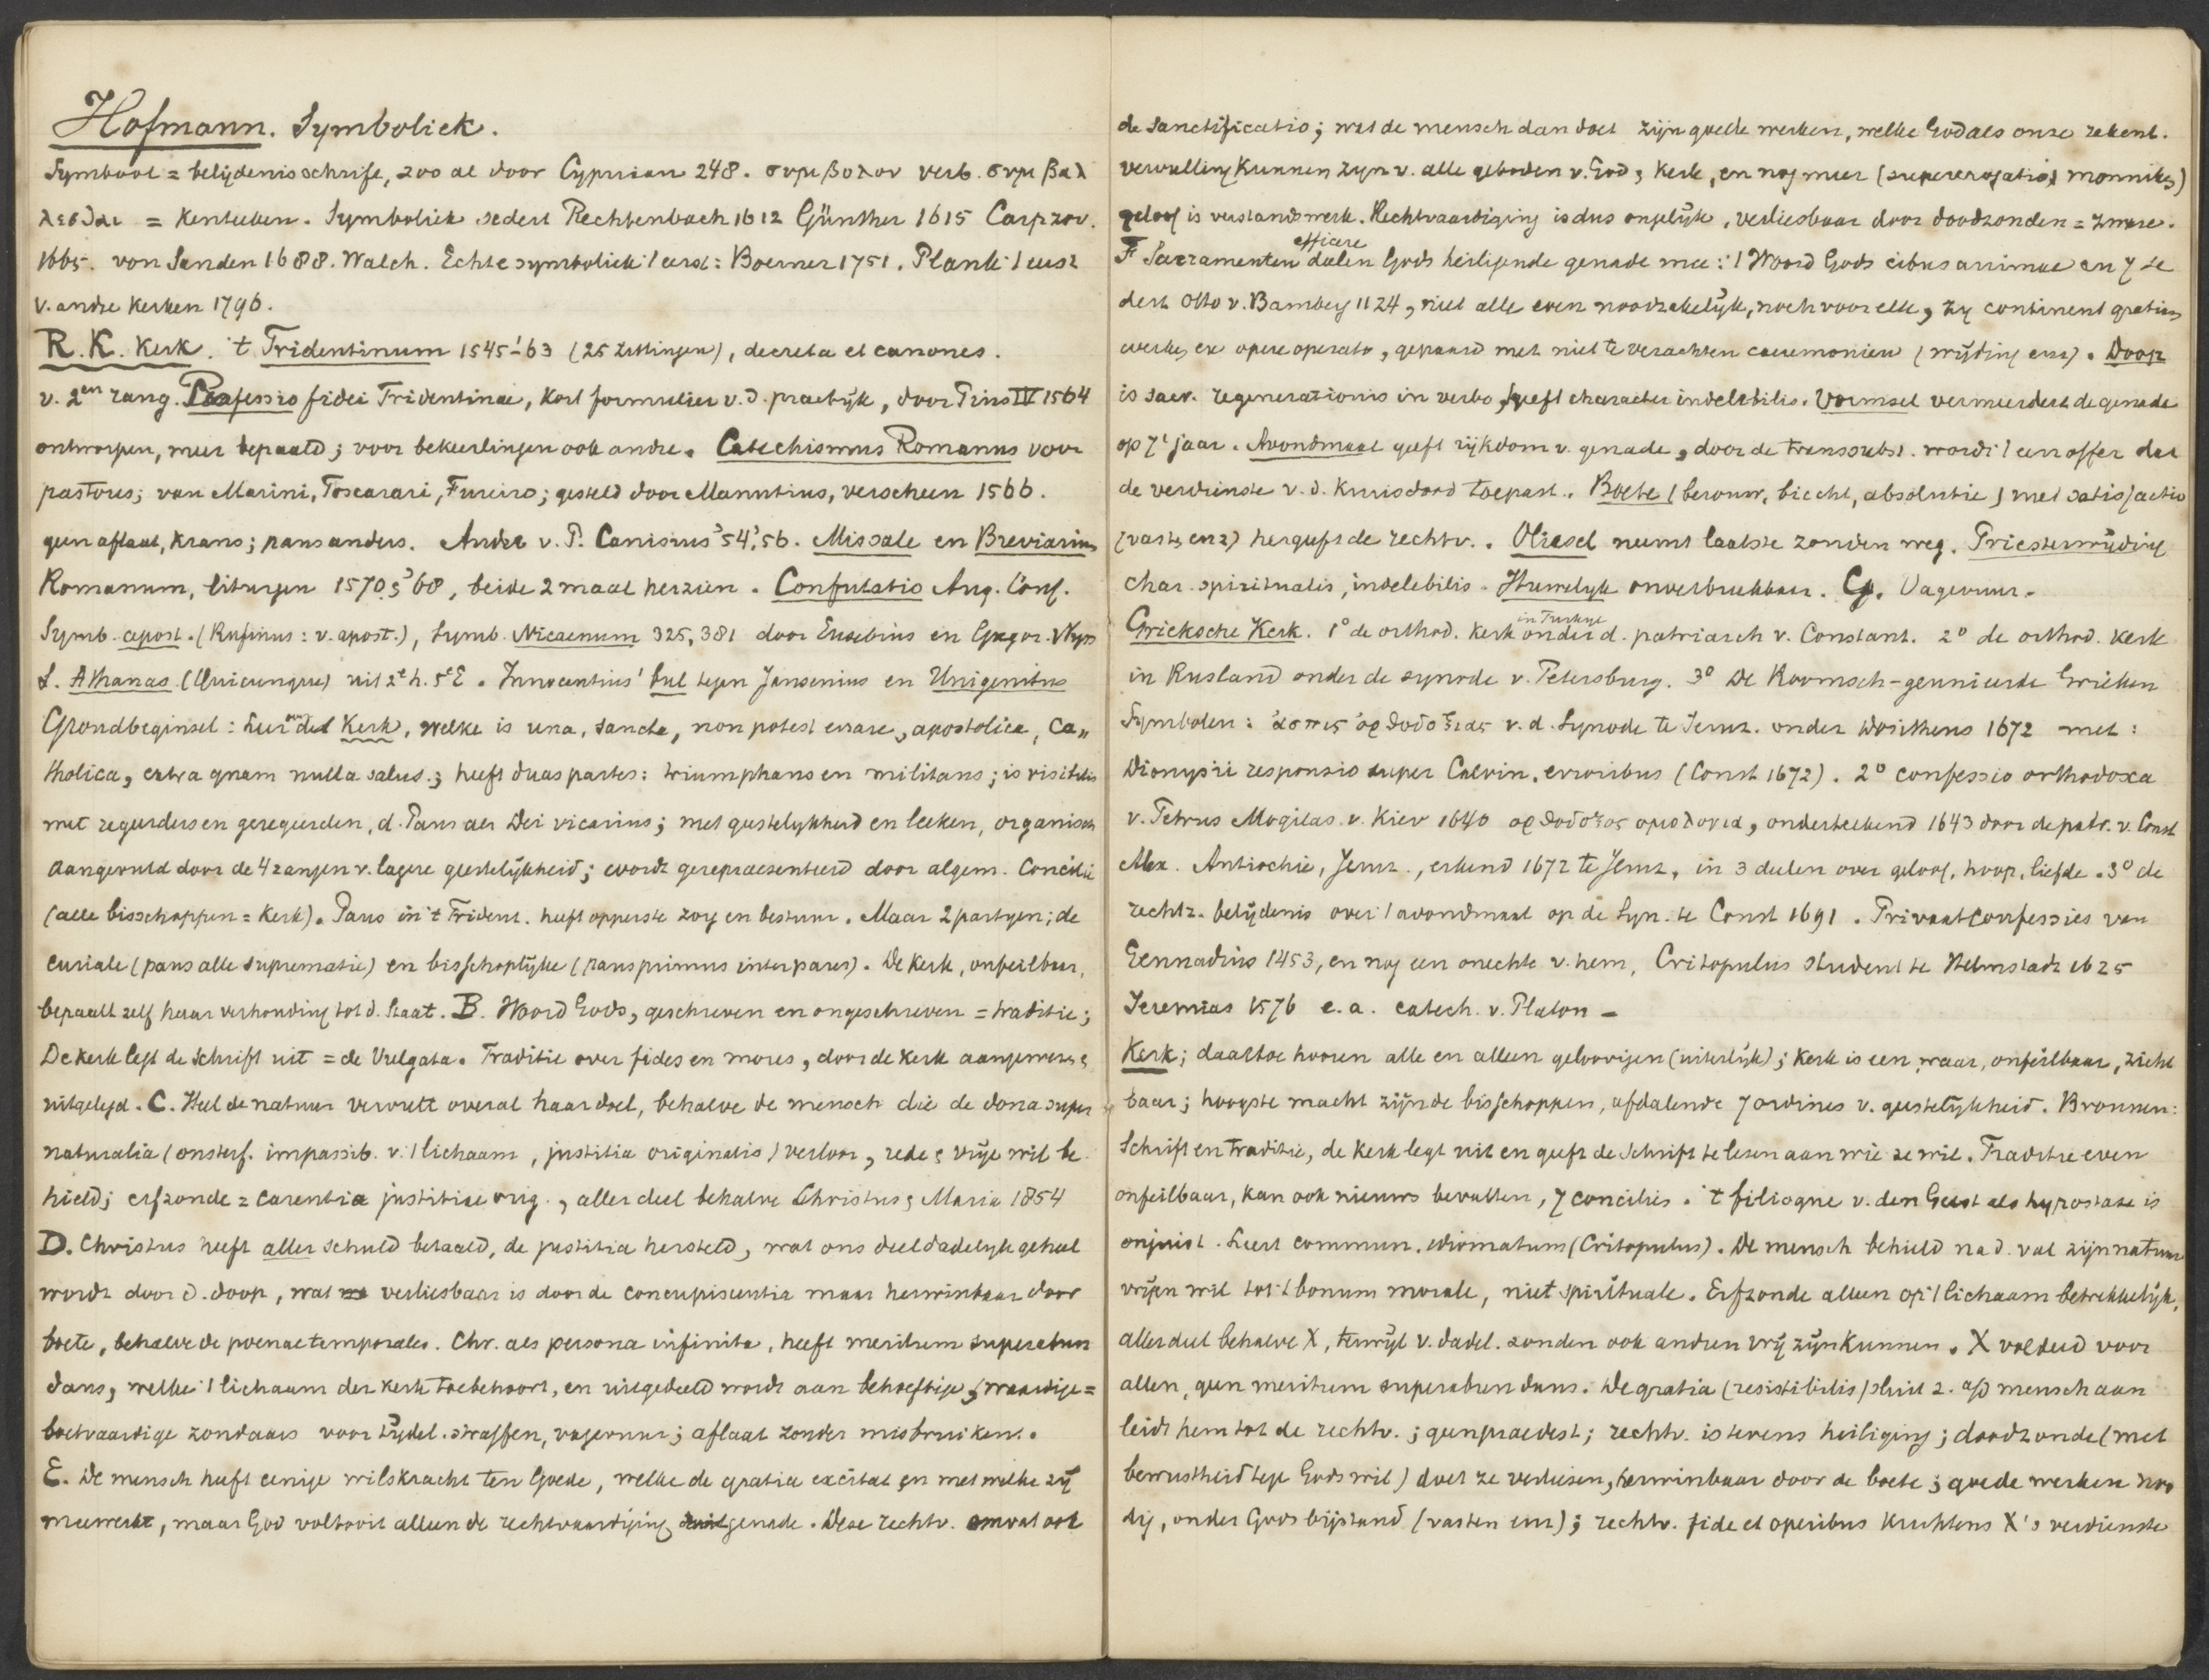 Hofmann. Symboliek.
Symbool = belijdenisschrift, zoo al door Cyprian 248. συμβολον verb. συμβαλ
λεσθαι = kenteeken. Symboliek sedert Rechtenbach 1612 Günther 1615 Carpzov.
1665. von Sanden 1688. Walch. Echte symboliek 't eerst: Boerner 1751. Plank 't eerst
v. andre kerken 1796.
R.K. Kerk. 't Tridentinum 1545-'63 (25 zittingen), decreta et canones.
v. 2en rang. Professio fidei Tridentinae, kort formulier v.d. praktijk, door Pius IV 1564
ontworpen, meer bepaald; voor bekeerlingen ook andre. Catechismus Romanus voor
pastores; van Marini, Toscarari, Fureiro; gesteld door Manutius, verscheen 1566.
geen aflaat, krans; paus anders. Ander v. P. Canisius '54, '56. Missale en Breviarium
Romanum, liturgen 1570 & '68, beide 2 maal herzien. Confutatio Aug. Conf.
Symb. apost. (Rufinus: v. apost.), Symb. Nicaenum 325, 381 door Eusebius en Gregor. Nyss
S. Athanas (Quicunque) uit 2e h. 5e E. Innocentius' bul tegen Jansenius en Unigenitus
Grondbeginsel: Leer over de Kerk, welke is una, sancta, non potest errare, apostolica, ca„
tholica, extra quam nulla salus; heeft duas partes: triumphans en militans; is visibilis
met regeerders en geregeerden, d. Paus als Dei vicarius; met geestelijkheid en leeken, organisch
aangevuld door de 4 rangen v. lagere geestelijkheid; wordt gerepraesenteerd door algem. Concilie
(alle bisschoppen = kerk). Paus in 't Trident. heeft opperste zorg en bestuur. Maar 2 partyen; de
curiale (paus alle suprematie) en bisschoplijke (paus primus inter pares). De kerk, onfeilbaar,
bepaalt zelf haar verhouding tot d. Staat. B. Woord Gods, geschreven en ongeschreven = traditie;
De kerk legt de Schrift uit = de Vulgata. Traditie over fides en mores, door de kerk aangewezen &
uitgelegd. C. Heel de natuur vervult overal haar doel, behalve de mensch die de dona super
naturalia (onsterf. impassib. v. 't lichaam, justitia originalis) verloor, rede & vrije wil be
hield; erfzonde = carentia justitiae orig., aller deel behalve Christus & Maria 1854
D. Christus heeft aller schuld betaald, de justitia hersteld, wat ons deel dadelyk geheel
wordt door d. doop, wat verliesbaar is door de concupiscentia maar herwinbaar door
boete, behalve de poenae temporales. Chr. als persona infinita, heeft meritum superabun
dans, welke 't lichaam der kerk toebehoort, en uitgedeeld wordt aan behoeftige & waardige =
boetvaardige zondaars voor tydel. straffen, vagevuur; aflaat zonder misbruiken.
E. De mensch heeft eenige wilskracht ten Goede, welke de gratia excitat en met welke zij
meewerkt, maar God voltooit alleen de rechtvaardiging genade. Deze rechtv. omvat ook
de Sanctificatio; wat de mensch dan doet zijn goede werken, welke God als onze rekent.
vervulling kunnen zyn v. alle geboden v. God & kerk, en nog meer (supererogatio) monniken)
geloof is verstandswerk. Rechtvaardiging is dus ongelijk, verliesbaar door doodzonden = zware.
efficere
F Sacramenten deelen Gods heiligende genade mee: 't Woord Gods cibus animae en 7 se
dert Otto v. Bamberg 1124, niet alle even noodzakelijk, noch voor elk, zy continent gratiam
werken ex opere operato, gepaard met niet te verachten caeremoniën (wijding enz). Doop
is sacr. regenerationis in verbo, geeft character indelebilis. Vormsel vermeerdert de genade
op 7e jaar. Avondmaal geeft rijkdom v. genade, door de transsubst. wordt 't een offer dat
de verdienste v. d. kruisdood toepast. Boete (berouw, biecht, absolutie) met satisfactio
(vasten enz) hergeeft de rechtv. Oliesel neemt laatste zonden weg. Priesterwijding
char. spiritualis, indelebilis. Huwelyk onverbreekbaar. G. Vagevuur.
in Turkye
Grieksche Kerk. 1° de orthod. kerk onder d. patriarch v. Constant. 2° de orthod. kerk
in Rusland onder de synode v. Petersburg. 3° De Roomsch-geunieerde Grieken
Symbolen: ἀσπις ὀρθοδοξιας v. d. Synode te Jeruz. onder Dositheus 1672 met:
Dionysii responsio super Calvin. erroribus (Const 1672). 2° confessio orthodoxa
v. Petrus Mogilas v. Kiev 1640 ορθοδοξος ομολογια, onderteekend 1643 door de patr. v. Const
Alex. Antiochie, Jeruz., erkend 1672 te Jeruz, in 3 deelen over geloof, hoop, liefde. 3° de
rechtz. belijdenis over 't avondmaal op de Syn. te Const 1691. Privaatconfessies van
Gennadius 1453, en nog een onechte v. hem, Critopulus student te Helmstadt 1625
Jeremias 1576 e.a. catech. v. Platon –
Kerk; daartoe hooren alle en alleen geloovigen (uiterlijk); kerk is een, waar, onfeilbaar, zicht
baar; hoogste macht zijn de bisschoppen, afdalende 7 ordines v. geestelijkheid. Bronnen:
Schrift en traditie, de kerk legt uit en geeft de Schrift te lezen aan wie ze wil. Traditie even
onfeilbaar, kan ook nieuws bevatten, 7 conciliës. 't filioque v. den Geest als hypostase is
onjuist. Leert commun. idiomatum (Critopulus). De mensch behield na d. val zijn natuur
vrijen wil tot 't bonum morale, niet spirituale. Erfzonde alleen op 't lichaam betrekkelijk,
aller deel behalve X, terwijl v. dadel. zonden ook andren vrij zijn kunnen. X voldeed voor
allen, geen meritum superabundans. De gratia (resistibilis) sluit z. a/d mensch aan
leidt hem tot de rechtv.; geen praedest; rechtv. is tevens heiliging; doodzonde (met
bewustheid tege Gods wil) doet ze verliezen, herwinbaar door de boete; goede werken noo
dig, onder Gods bijstand (vasten enz); rechtv. fide et operibus krachtens X's verdienste